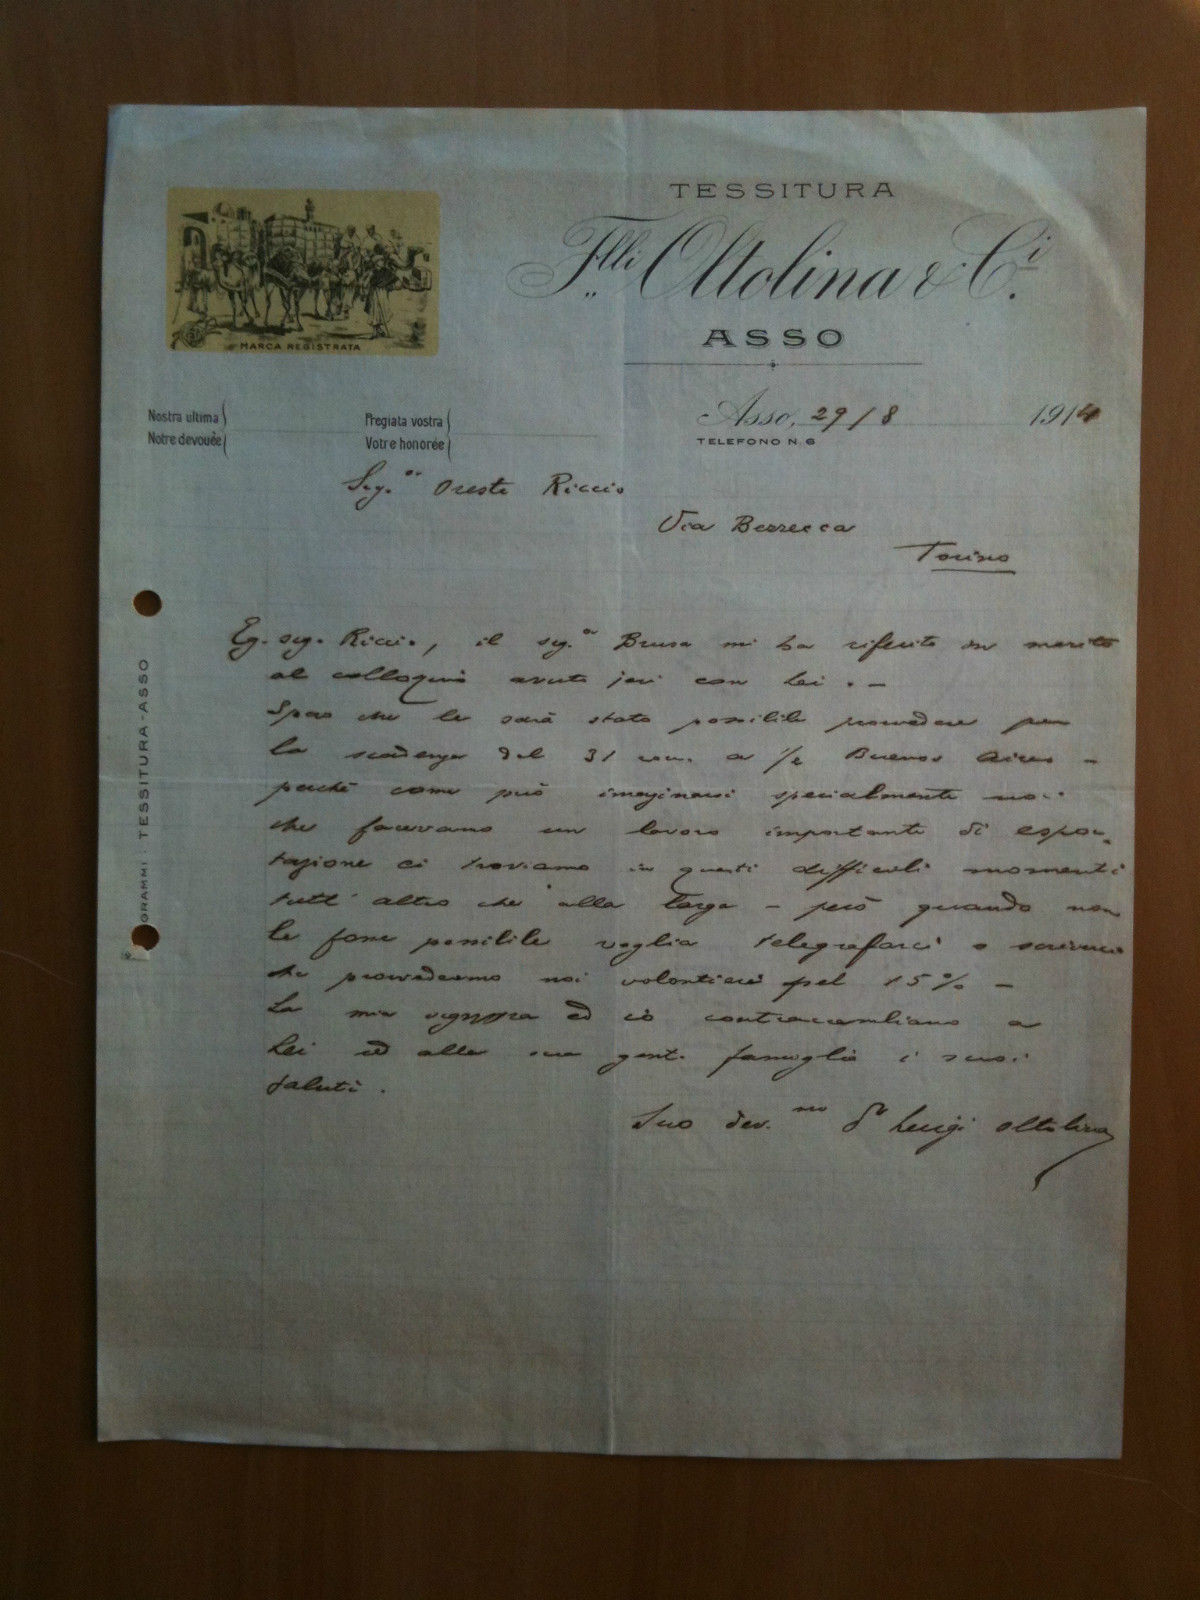 TESSITURA
F.lli Ottolina & C.i
ASSO
MARCA REGISTRATA
Nostra ultima
Notre devouée
Pregiata vostra
Votre honorée
Asso, 29/8 1914
TELEFONO N. 6
Seg.or Oreste Riccio
Via Bezzecca
Torino
Eg. seg. Riccio, il seg.or Brusa mi ha riferito in merito
al colloquio avuto jeri con Lei. —
Spero che le sarà stato possibile provvedere per
la scadenza del 31 corr. a Buenos Aires —
perchè come può imaginarsi specialmente noi
che facevamo un lavoro importante di espor-
tazione ci troviamo in questi difficili momenti
tutt' altro che alla larga — però quando non
le fosse possibile voglia telegrafarci o scriverci
che provvederemo noi volontieri pel 15% —
La mia ed io contraccambiamo a
Lei ed alla sua gent. famiglia i suoi
saluti.
Suo dev.mo Dr Luigi Ottolina
GRAMMI: TESSITURA-ASSO